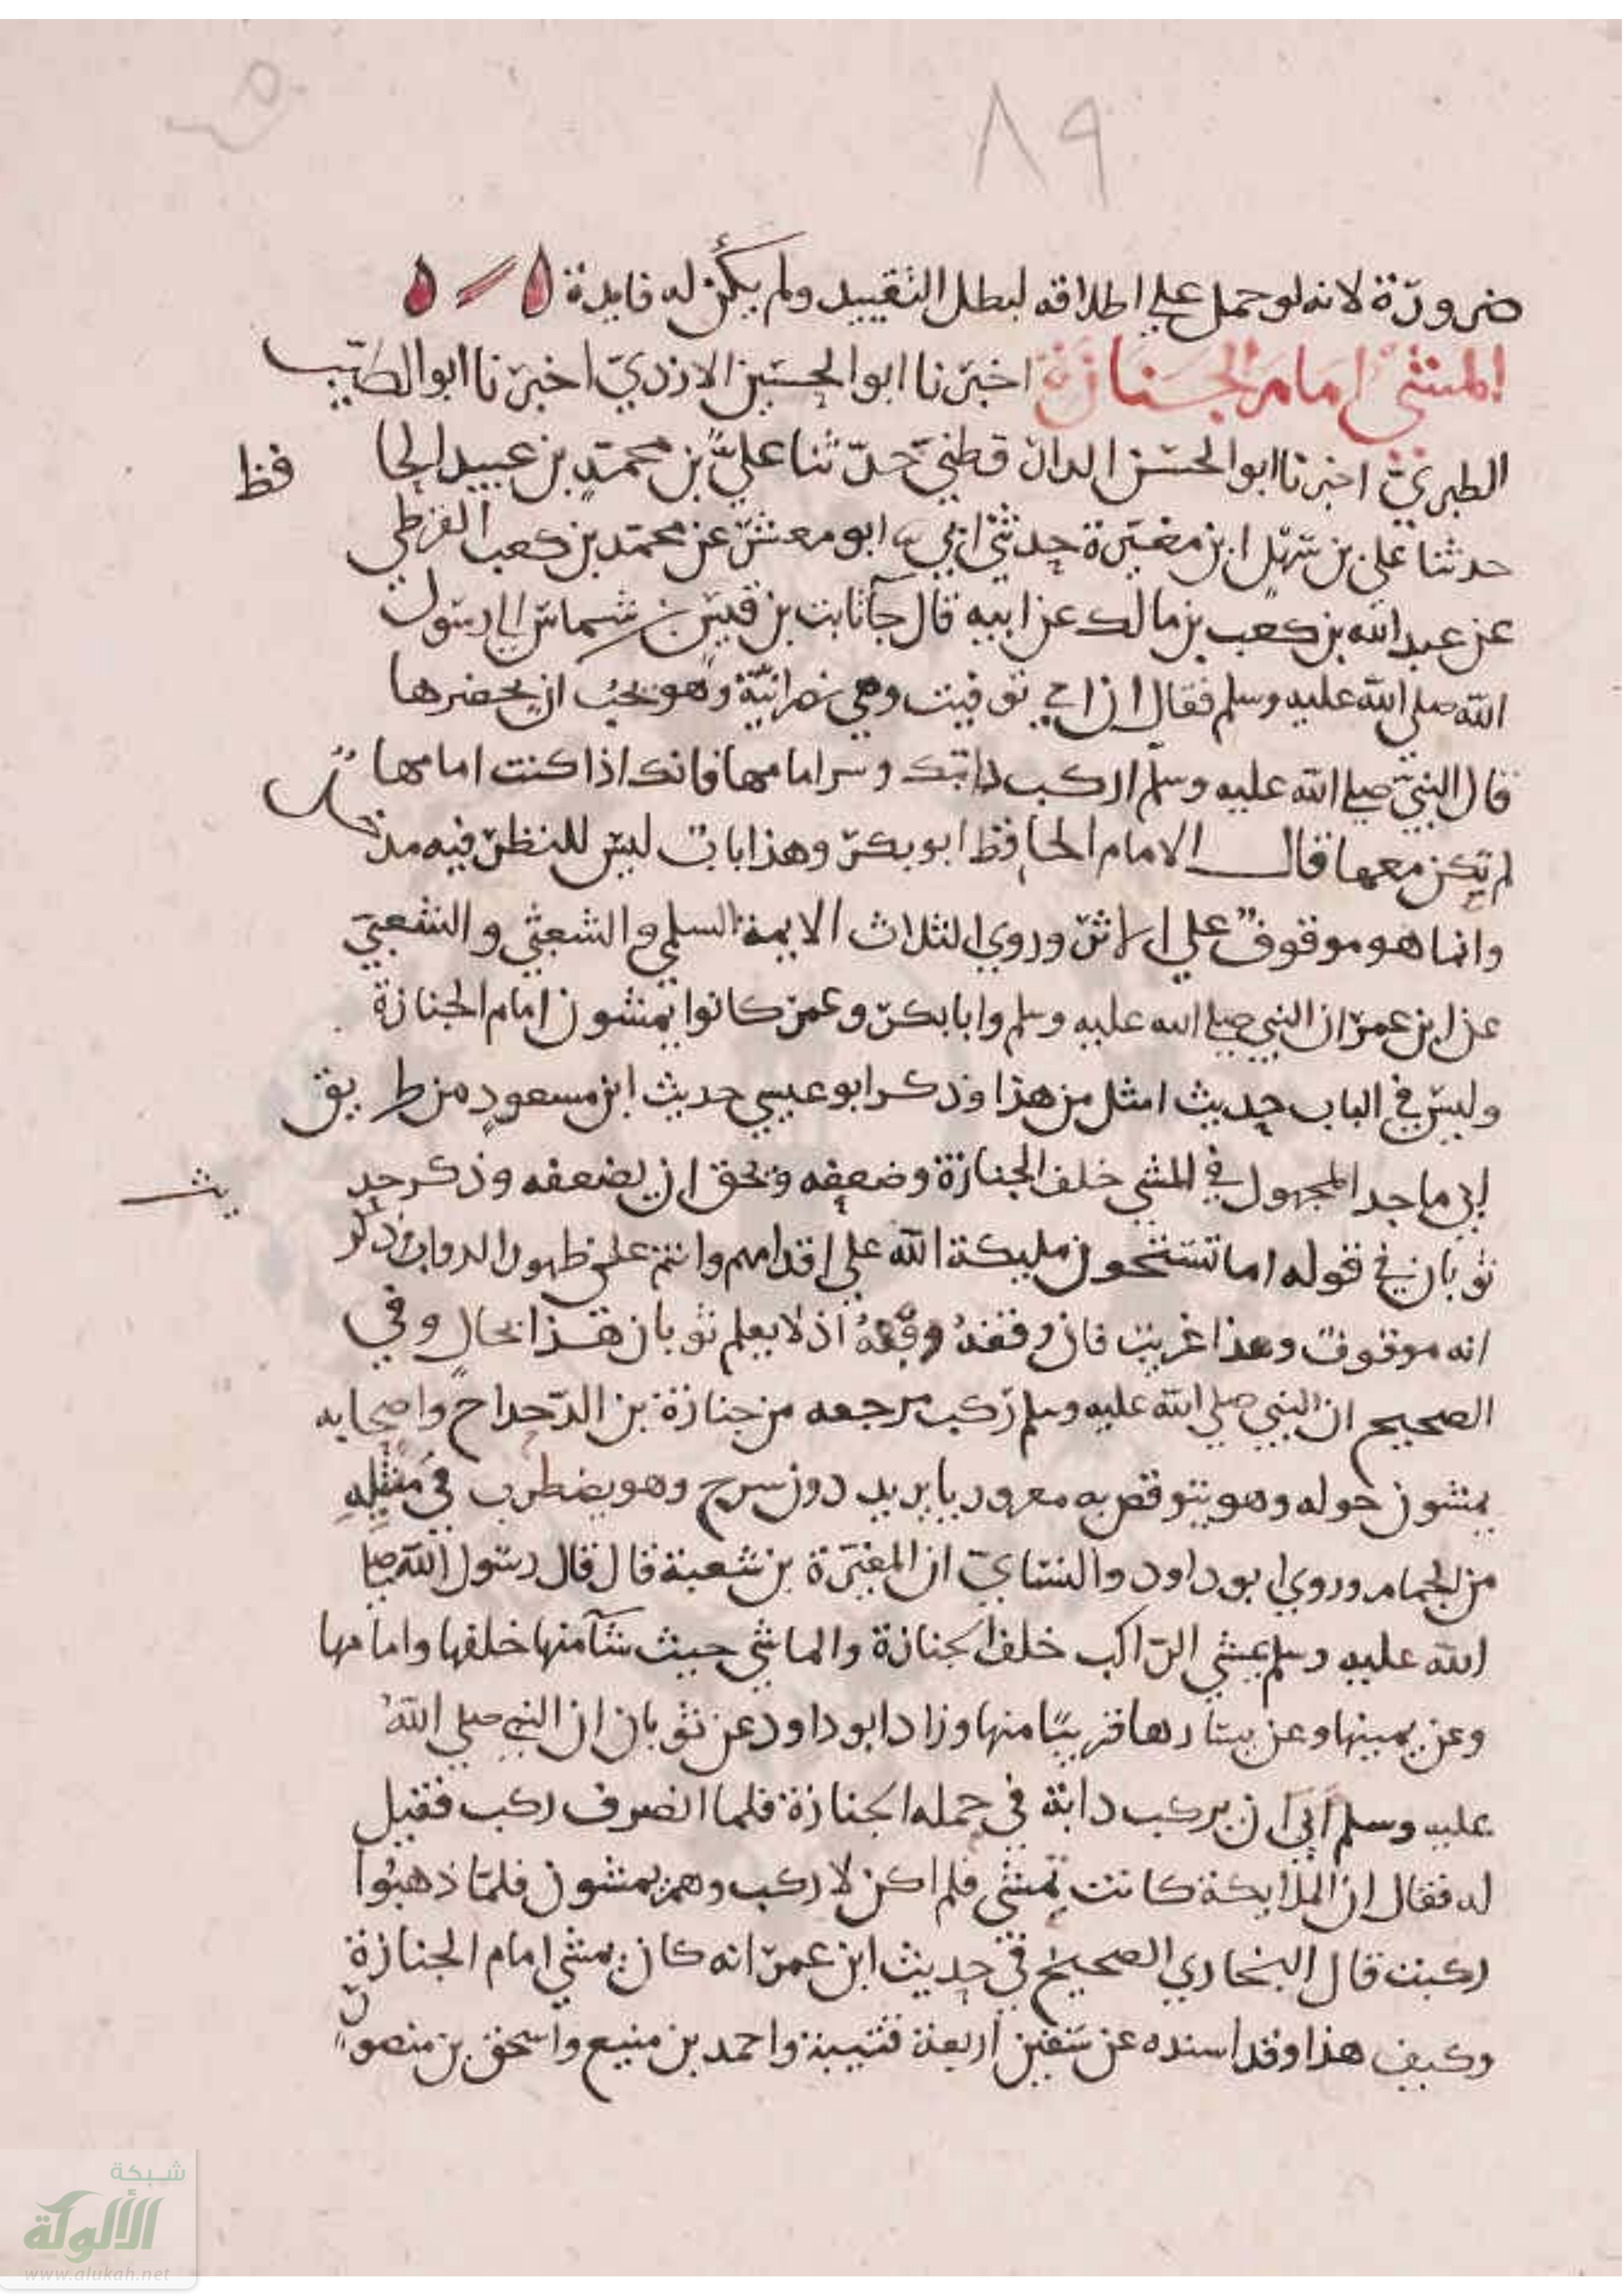 ٨٩
ضرورة لانه لو حمل علي اطلاقه لبطل التقييد ولم يكن له فايدة
المشي امام الجنازة اخبرنا ابو الحسين الازدي اخبرنا ابو الطيب
الطبري اخبرنا ابو الحسن الدارقطني حدثنا علي بن محمد بن عبيد الحافظ
حدثنا علي بن سهل ابن مغيرة حدثني ابي ابو معشر عن محمد بن كعب القرظي
عن عبد الله بن كعب بن مالك عن ابيه قال جآ ثابت بن قيس بن شماس الي رسول
الله صلى الله عليه وسلم فقال ان امي توفيت وهي نصرانية وهو يحب ان يحضرها
قال النبي صلي الله عليه وسلم اركب دابتك وسر امامها فانك اذا كنت امامها
لم تكن معها قال الامام الحافظ ابو بكر وهذا باب ليس للنظر فيه مدخل
وانما هو موقوف علي الاثر وروي الثلاث الايمة السلمي والشعثي والشعبي
عن ابن عمر ان النبي صلي الله عليه وسلم وابا بكر وعمر كانوا يمشون امام الجنازة
وليس في الباب حديث امثل من هذا وذكر ابو عيسي حديث ابن مسعود من طريق
ابي ماجد المجهول في المشي خلف الجنازة وضعفه ويحق ان يضعفه وذكر حديث
ثوبان في قوله اما تستحون مليكة الله علي اقدامهم وانتم علي ظهور الدواب وذكر
انه موقوف وهذا غريب فان وقفه اذ لا يعلم ثوبان هذا بحال وفي
الصحيح ان النبي صلي الله عليه وسلم ركب مرجعه من جنازة بن الدحداح واصحابه
يمشون حوله وهو يتوقص به معروريا يريد دون سرج وهو يضطرب في مشيه
من الجمام وروي ابو داود والنساي ان المغيرة بن شعبة قال قال رسول الله صلي
الله عليه وسلم يمشي الراكب خلف الجنازة والماشي حيث شآ منها خلفها وامامها
وعن يمينها وعن يسارها قريبًا منها وزاد ابو داود عن ثوبان ان النبي صلي الله
عليه وسلم ابي ان يركب دابة في حمله الجنازة فلما انصرف ركب فقيل
له فقال ان الملايكة كانت تمشي فلم اكن لاركب وهم يمشون فلما ذهبوا
ركبت قال البخاري الصحيح في حديث ابن عمر انه كان يمشي امام الجنازة
وكيف هذا وقد اسنده عن سفين اربعة قتيبة واحمد بن منيع واسحق بن منصور
شبكة
الألوكة
www.alukah.net